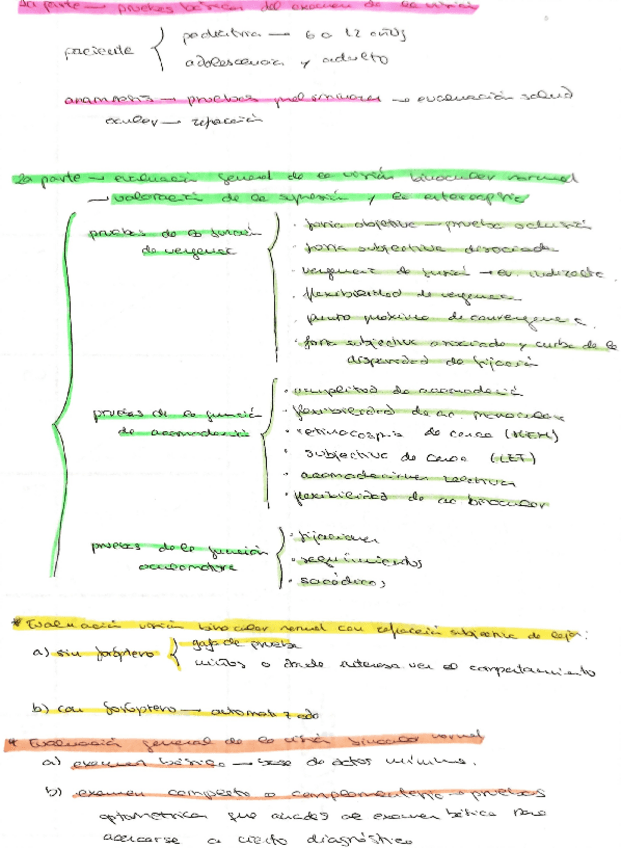 1a parte → pruebas básicas del examen de la visión
paciente { pediatría → 6 a 12 años
adolescencia y adulto
anamnesis → pruebas preliminares → evaluación salud
ocular → refracción
2a parte → evaluació general de la visión binocular normal
→ valoració de la supresión y la estereopsis
pruebas de la función de vergencia
· foria objetiva → prueba oclusión
· foria subjectiva disociada
· vergencia de fusión → ev. indirecta
· flexibilidad de vergencia
· punto próximo de convergencia.
· foria subjectiva asociada y curva de la
disparidad de fijació
pruebas de la función de acomodació
· amplitud de acomodació
· flexibilidad de ac. monocular
· retinoscopia de cerca (MEM)
· subjectivo de cerca (LET)
· acomodaciones relativas
· flexibilidad de ac binocular
pruebas de la función oculomotora
· fijaciones
· seguimientos
· sacádicos
* Evaluació visión binocular normal con refracción subjectiva de lejos:
a) sin foróptero { gafa de prueba
niños o donde interesa ver el comportamiento
b) con foróptero → automatizado
* Evaluació general de la visión binocular normal
a) examen básico → base de datos mínima.
b) examen completo o complementario → pruebas
optometricas que añades al examen básico para
acercarse a cierto diagnóstico